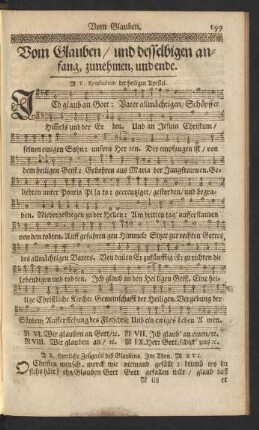 Vom Glauben. 199
Vom Glauben / und desselbigen an-
fang, zunehmen, und ende.
N V. Symbolum der heiligen Apostel.
ICh glaub an Gott: Vater allmächtigen / Schöpffer
Himels und der Er den. Und an Jesum Christum /
seinen einigen Sohn: unsern Her ren. Der empfangen ist / von
dem heiligen Geist: Gebohren aus Maria der Jungfrauwen. Ge-
liebten unter Pontio Pi la to: gecreutziget / gestorben / und begra-
ben. Niedergestiegen zu der Hellen: Am dritten tag' aufferstanden
von den todten. Auff gefahren gen Himmel: Sitzet zur rechten Gottes
des allmächtigen Vaters. Von dan en Er zukünfftig ist zu richten die
Lebendigen und todten. Ich glaub an den Heiligen Geist. Eine hei-
lige Christliche Kirche: Gemeinschafft der Heiligen. Vergebung der
Sünden: Aufferstehung des Fleisches: Und ein ewiges leben A men.
N VI. Wir glauben an Gott / ꝛc. N VII. Ich glaub' an einen / ꝛc.
N VIII. Wir glauben an / ꝛc. N IX. Herr Gott / schick' uns ꝛc.
N X. Herrliche Zeugniß des Glaubens, Im Thon. N XVI.
O Christen mensch, merck wie niemand gefällt: drumb wo du
ohn Glauben Gott Gott gefallen wilt / glaub daß
er